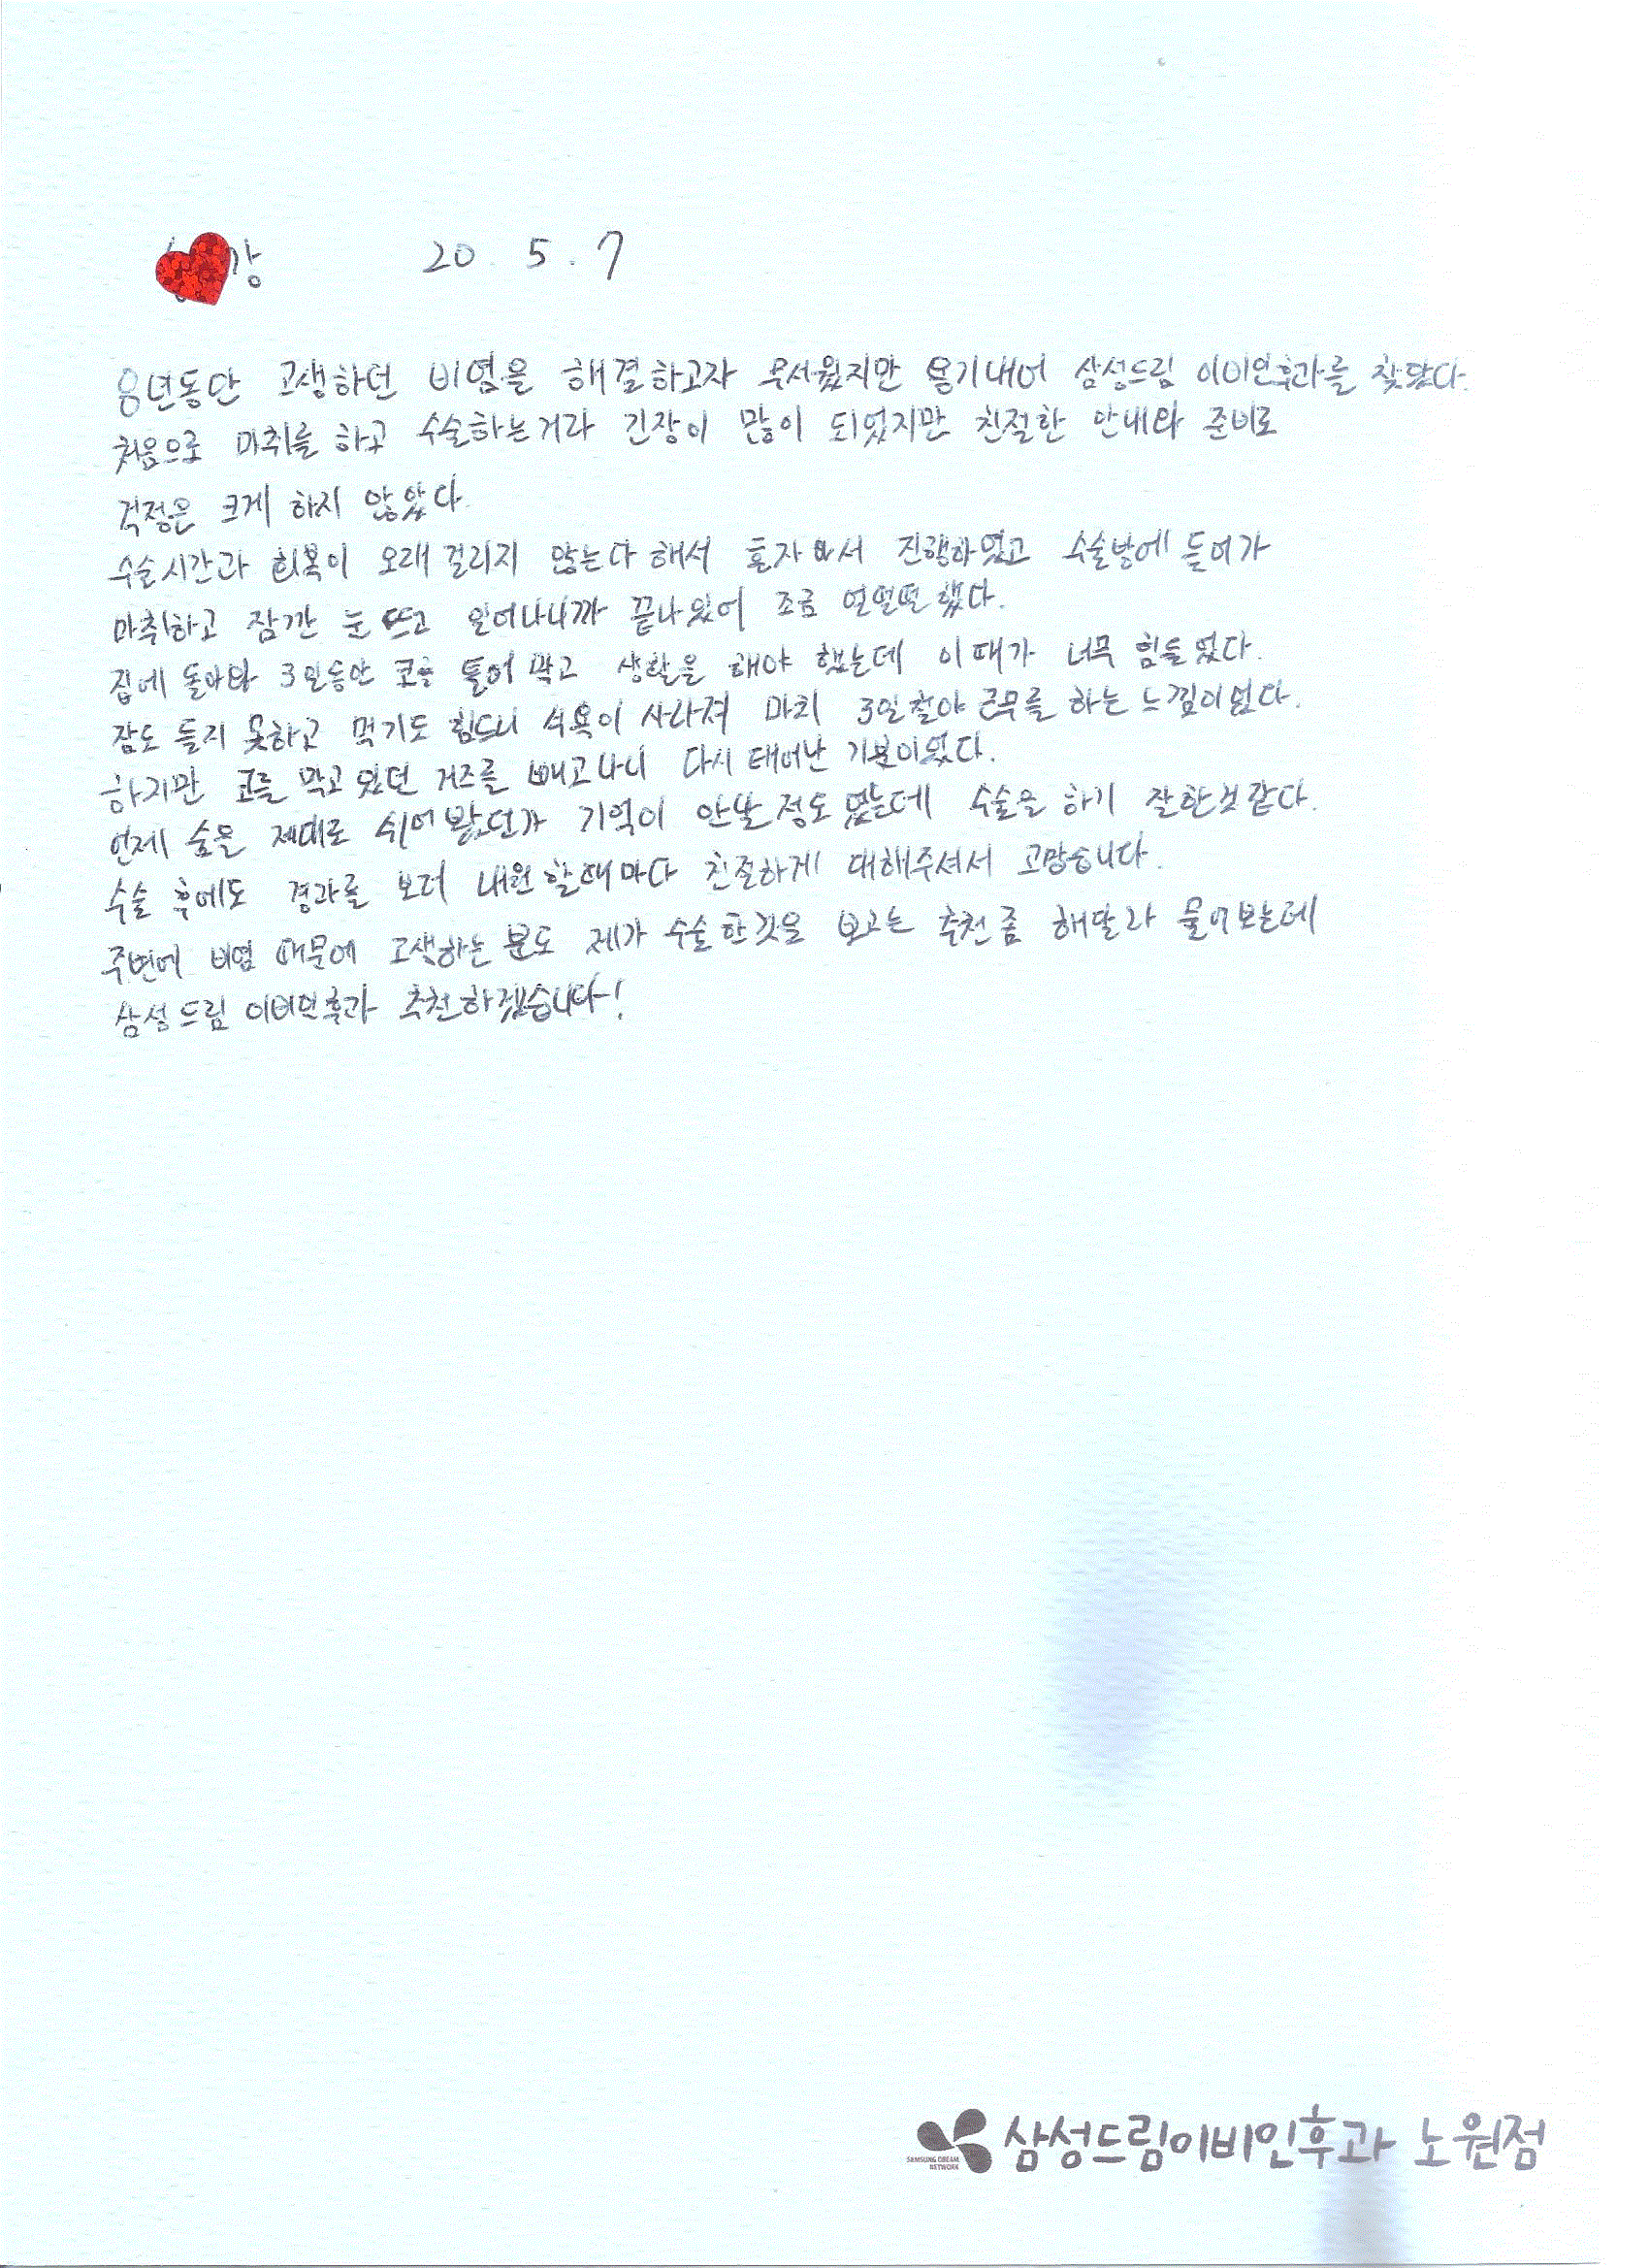 강 20. 5. 7
8년동안 고생하던 비염을 해결하고자 무서웠지만 용기내어 삼성드림 이비인후과를 찾았다.
처음으로 마취를 하고 수술하는거라 긴장이 많이 되었지만 친절한 안내와 준비로
걱정은 크게 하지 않았다.
수술시간과 회복이 오래 걸리지 않는다 해서 혼자 와서 진행하였고 수술방에 들어가
마취하고 잠깐 눈 뜨고 일어나니까 끝나있어 조금 얼떨떨했다.
집에 돌아와 3일동안 코를 틀어 막고 생활을 해야 했는데 이때가 너무 힘들었다.
잠도 들지 못하고 먹기도 힘드니 식욕이 사라져 마치 3일철야 근무를 하는 느낌이었다.
하지만 코를 막고 있던 거즈를 빼고나니 다시 태어난 기분이였다.
언제 숨을 제대로 쉬어 봤던가 기억이 안날 정도 였는데 수술을 하기 잘한것같다.
수술 후에도 경과를 보러 내원 할때마다 친절하게 대해주셔서 고맙습니다.
주변에 비염 때문에 고생하는 분도 제가 수술한것을 보고는 추천좀 해달라 물어보는데
삼성드림 이비인후과 추천하겠습니다!
SAMSUNG DREAM
NETWORK
삼성드림이비인후과 노원점